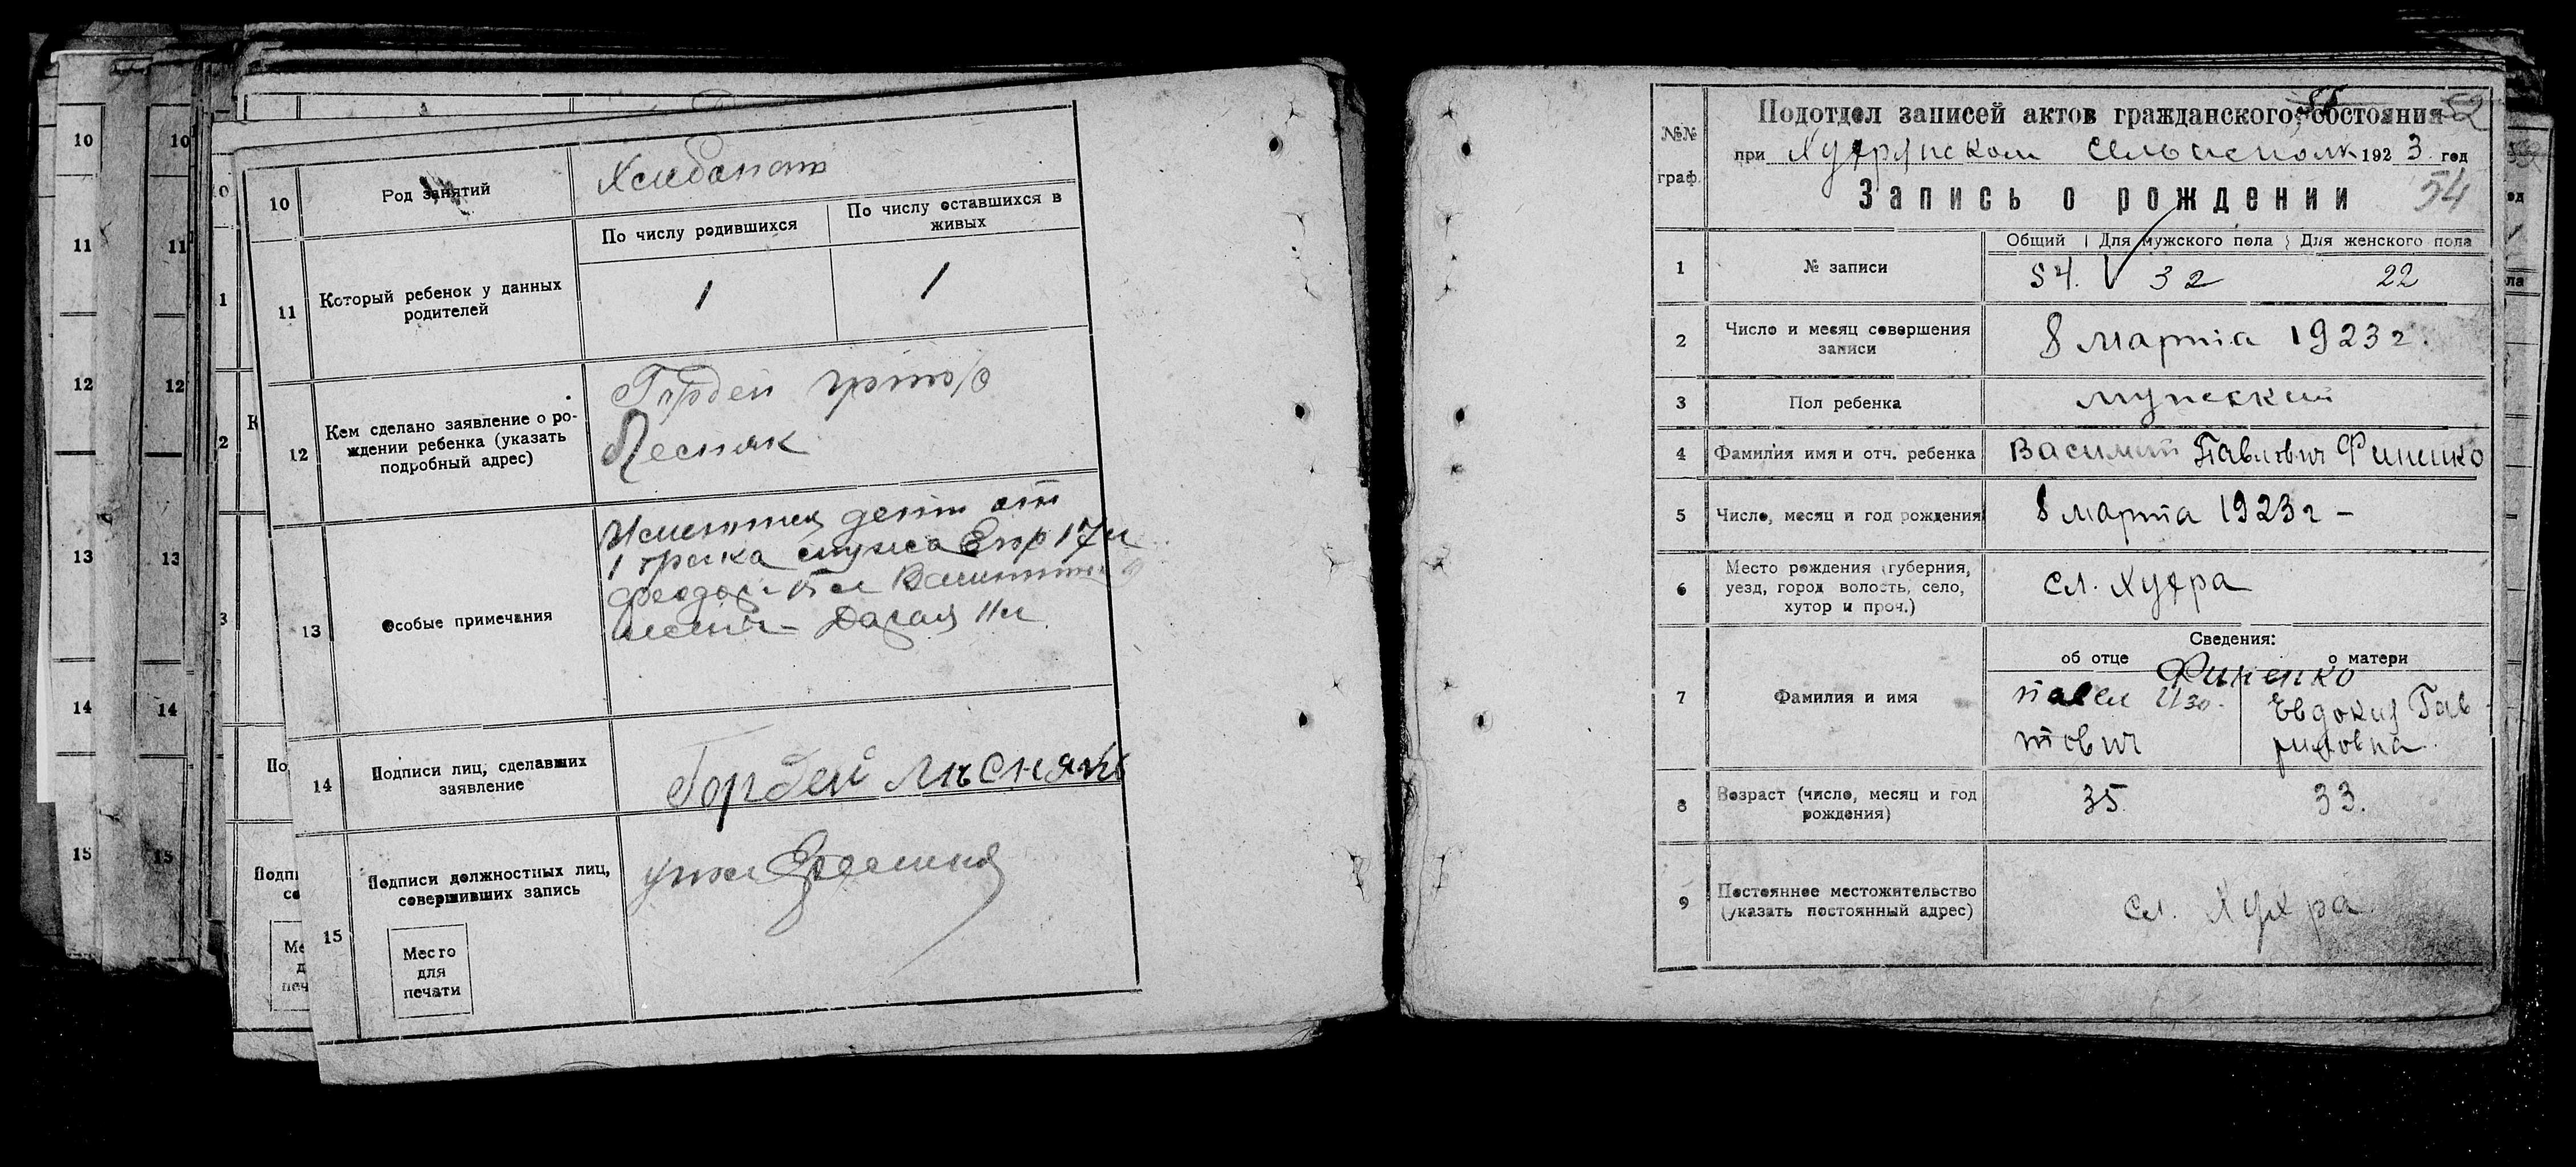 10
11
12
13
14
15
10
11
12
13
14
15
10
Род занятий
Хлебопаш
11
Который ребенок у данных
родителей
По числу родившихся
По числу оставшихся в
живых
1
1
12
Кем сделано заявление о ро-
ждении ребенка (указать
подробный адрес)
Гордей
Лесняк
13
Особые примечания
дети от
1 брака Егор 17 л
15 л
Дарья 11 л
14
Подписи лиц, сделавших
заявление
Гордей Лѣснякъ
15
Подписи должностных лиц,
совершивших запись
Место
для
печати
№№
граф.
Подотдел записей актов гражданского состояния
52
при Хухрянском Сельисполк 1923 год
Запись о рождении
54
1
№ записи
Общий
Для мужского пола
Для женского пола
54.
32
22
2
Число и месяц совершения
записи
8 марта 1923 г.
3
Пол ребенка
мужский
4
Фамилия имя и отч. ребенка
Василий Павлович Финенко
5
Число, месяц и год рождения
8 марта 1923 г –
6
Место рождения (губерния,
уезд, город волость, село,
хутор и проч.)
сл. Хухра
7
Фамилия и имя
Сведения:
об отце
о матери
Финенко
Павел Изо-
тович
Евдокия Гав
риловна
8
Возраст (число, месяц и год
рождения)
35
33.
9
Постоянное местожительство
(указать постоянный адрес)
сл. Хухра